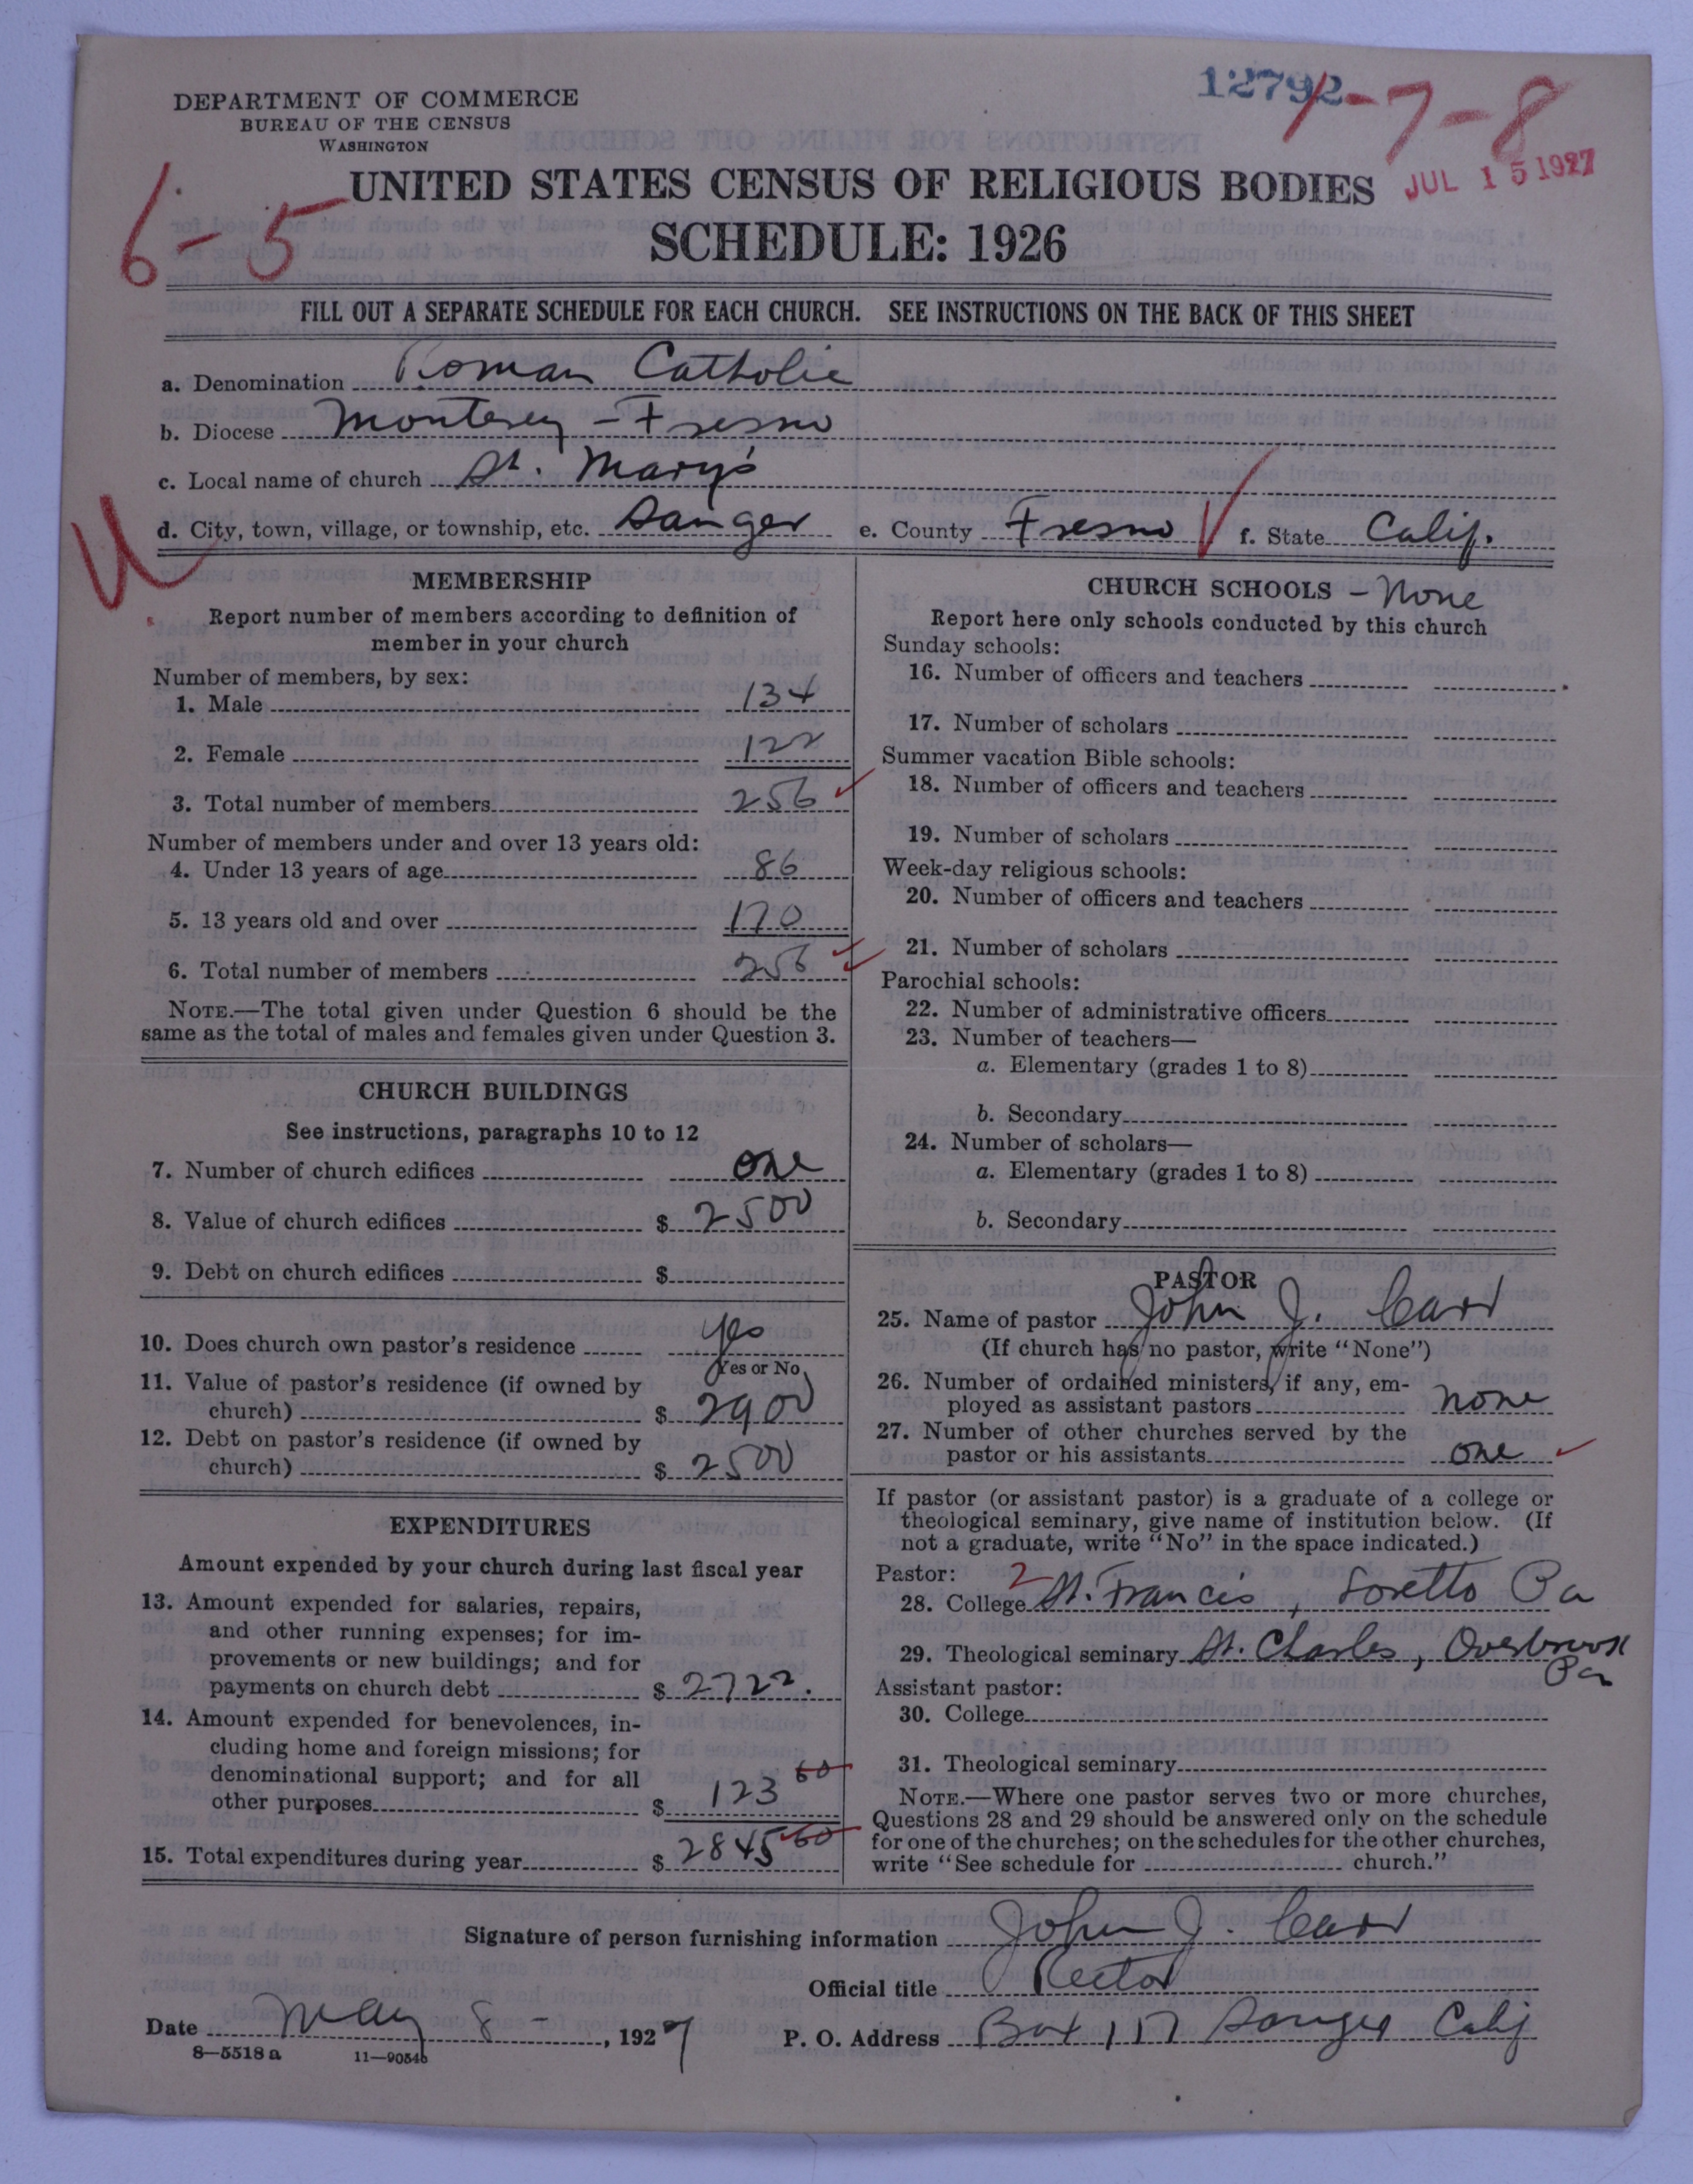 DEPARTMENT OF COMMERCE
BUREAU OF THE CENSUS
WASHINGTON
12792
1-7-8
JUL 15 1927
6-5
UNITED STATES CENSUS OF RELIGIOUS BODIES
SCHEDULE: 1926
FILL OUT A SEPARATE SCHEDULE FOR EACH CHURCH. SEE INSTRUCTIONS ON THE BACK OF THIS SHEET
a. Denomination Roman Catholic
b. Diocese Monterey - Fresno
c. Local name of church St. Mary's
U
d. City, town, village, or township, etc. Sanger e. County Fresno f. State Calif.
MEMBERSHIP
Report number of members according to definition of
member in your church
Number of members, by sex:
1. Male 134
2. Female 122
3. Total number of members 256
Number of members under and over 13 years old:
4. Under 13 years of age 86
5. 13 years old and over 170
6. Total number of members 256
NOTE.—The total given under Question 6 should be the
same as the total of males and females given under Question 3.
CHURCH BUILDINGS
See instructions, paragraphs 10 to 12
7. Number of church edifices one
8. Value of church edifices $ 2500
9. Debt on church edifices $
10. Does church own pastor's residence yes
Yes or No
11. Value of pastor's residence (if owned by
church) $ 2900
12. Debt on pastor's residence (if owned by
church) $ 2500
EXPENDITURES
Amount expended by your church during last fiscal year
13. Amount expended for salaries, repairs,
and other running expenses; for im-
provements or new buildings; and for
payments on church debt $ 2722.
14. Amount expended for benevolences, in-
cluding home and foreign missions; for
denominational support; and for all
other purposes $ 123 60
15. Total expenditures during year $ 2845 60
CHURCH SCHOOLS - None
Report here only schools conducted by this church
Sunday schools:
16. Number of officers and teachers
17. Number of scholars
Summer vacation Bible schools:
18. Number of officers and teachers
19. Number of scholars
Week-day religious schools:
20. Number of officers and teachers
21. Number of scholars
Parochial schools:
22. Number of administrative officers
23. Number of teachers—
a. Elementary (grades 1 to 8)
b. Secondary
24. Number of scholars—
a. Elementary (grades 1 to 8)
b. Secondary
PASTOR
25. Name of pastor John J. Carr
(If church has no pastor, write "None")
26. Number of ordained ministers, if any, em-
ployed as assistant pastors none
27. Number of other churches served by the
pastor or his assistants one
If pastor (or assistant pastor) is a graduate of a college or
theological seminary, give name of institution below. (If
not a graduate, write "No" in the space indicated.)
Pastor: 2
28. College St. Francis, Loretto Pa
29. Theological seminary St. Charles, Overbrook
Pa
Assistant pastor:
30. College
31. Theological seminary
NOTE.—Where one pastor serves two or more churches,
Questions 28 and 29 should be answered only on the schedule
for one of the churches; on the schedules for the other churches,
write "See schedule for church."
Signature of person furnishing information John J. Carr
Official title Rector
Date May 8 - , 1927 P. O. Address Box 117 Sanger Calif
8—5518 a 11—90546